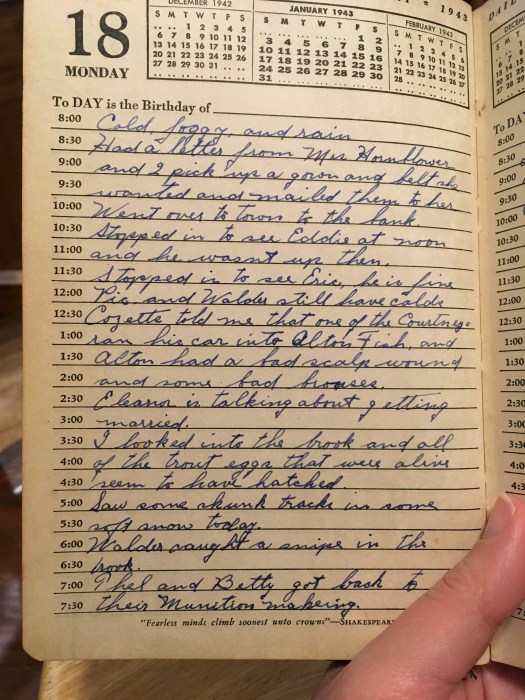 18
MONDAY
DECEMBER 1942
S M T W T F S
1 2 3 4 5
6 7 8 9 10 11 12
13 14 15 16 17 18 19
20 21 22 23 24 25 26
27 28 29 30 31
JANUARY 1943
S M T W T F S
1 2
3 4 5 6 7 8 9
10 11 12 13 14 15 16
17 18 19 20 21 22 23
24 25 26 27 28 29 30
31
1943
FEBRUARY 1943
S M T W T F S
1 2 3 4 5 6
7 8 9 10 11 12 13
14 15 16 17 18 19 20
21 22 23 24 25 26 27
28
To DAY is the Birthday of
8:00 Cold, foggy, and rain
8:30 Had a letter from Mrs Hornblower
9:00 and I pick up a gown and belt she
9:30 wanted and mailed them to her
10:00 Went over to town to the bank.
10:30 Stopped in to see Eddie at noon
11:00 and he wasnt up then.
11:30 Stopped in to see Eric, he is fine
12:00 Pic and Walder still have colds
12:30 Cozette told me that one of the Courtneys
1:00 ran his car into Alton Fish, and
1:30 Alton had a bad scalp wound
2:00 and some bad brouses.
2:30 Eleanor is talking about getting
3:00 married.
3:30 I looked into the brook and all
4:00 of the trout eggs that were alive
4:30 seem to have hatched.
5:00 Saw some skunk tracks in some
5:30 soft snow today.
6:00 Walder caught a snipe in the
6:30 brook.
7:00 and Betty got back to
7:30 their Munition makeing.
"Fearless minds climb soonest unto crowns"—SHAKESPEAR
DAIL
DECEM
To DA
8:00
8:30
9:00
9:30
10:00
10:30
11:00
11:30
12:00
12:30
1:00
1:30
2:00
2:30
3:0
3:3
4:0
4:3